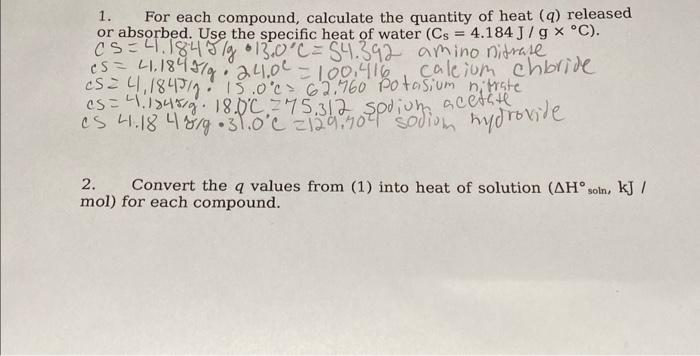 1. For each compound, calculate the quantity of heat (q) released
or absorbed. Use the specific heat of water (Cs = 4.184 J / g × °C).
CS = 4.184 J/g • 13.0°C = 54.392 amino nitrate
cs = 4.184 J/g • 24.0c = 100.416 calcium chloride
cs = 4.184 J/g • 15.0°c = 62.760 Potasium nitrate
cs = 4.184 J/g • 18.0°C = 75.312 sodium acetate
cs 4.184 J/g • 31.0°C = 129.704 sodium hydroxide
2. Convert the q values from (1) into heat of solution (ΔH° soln, kJ /
mol) for each compound.